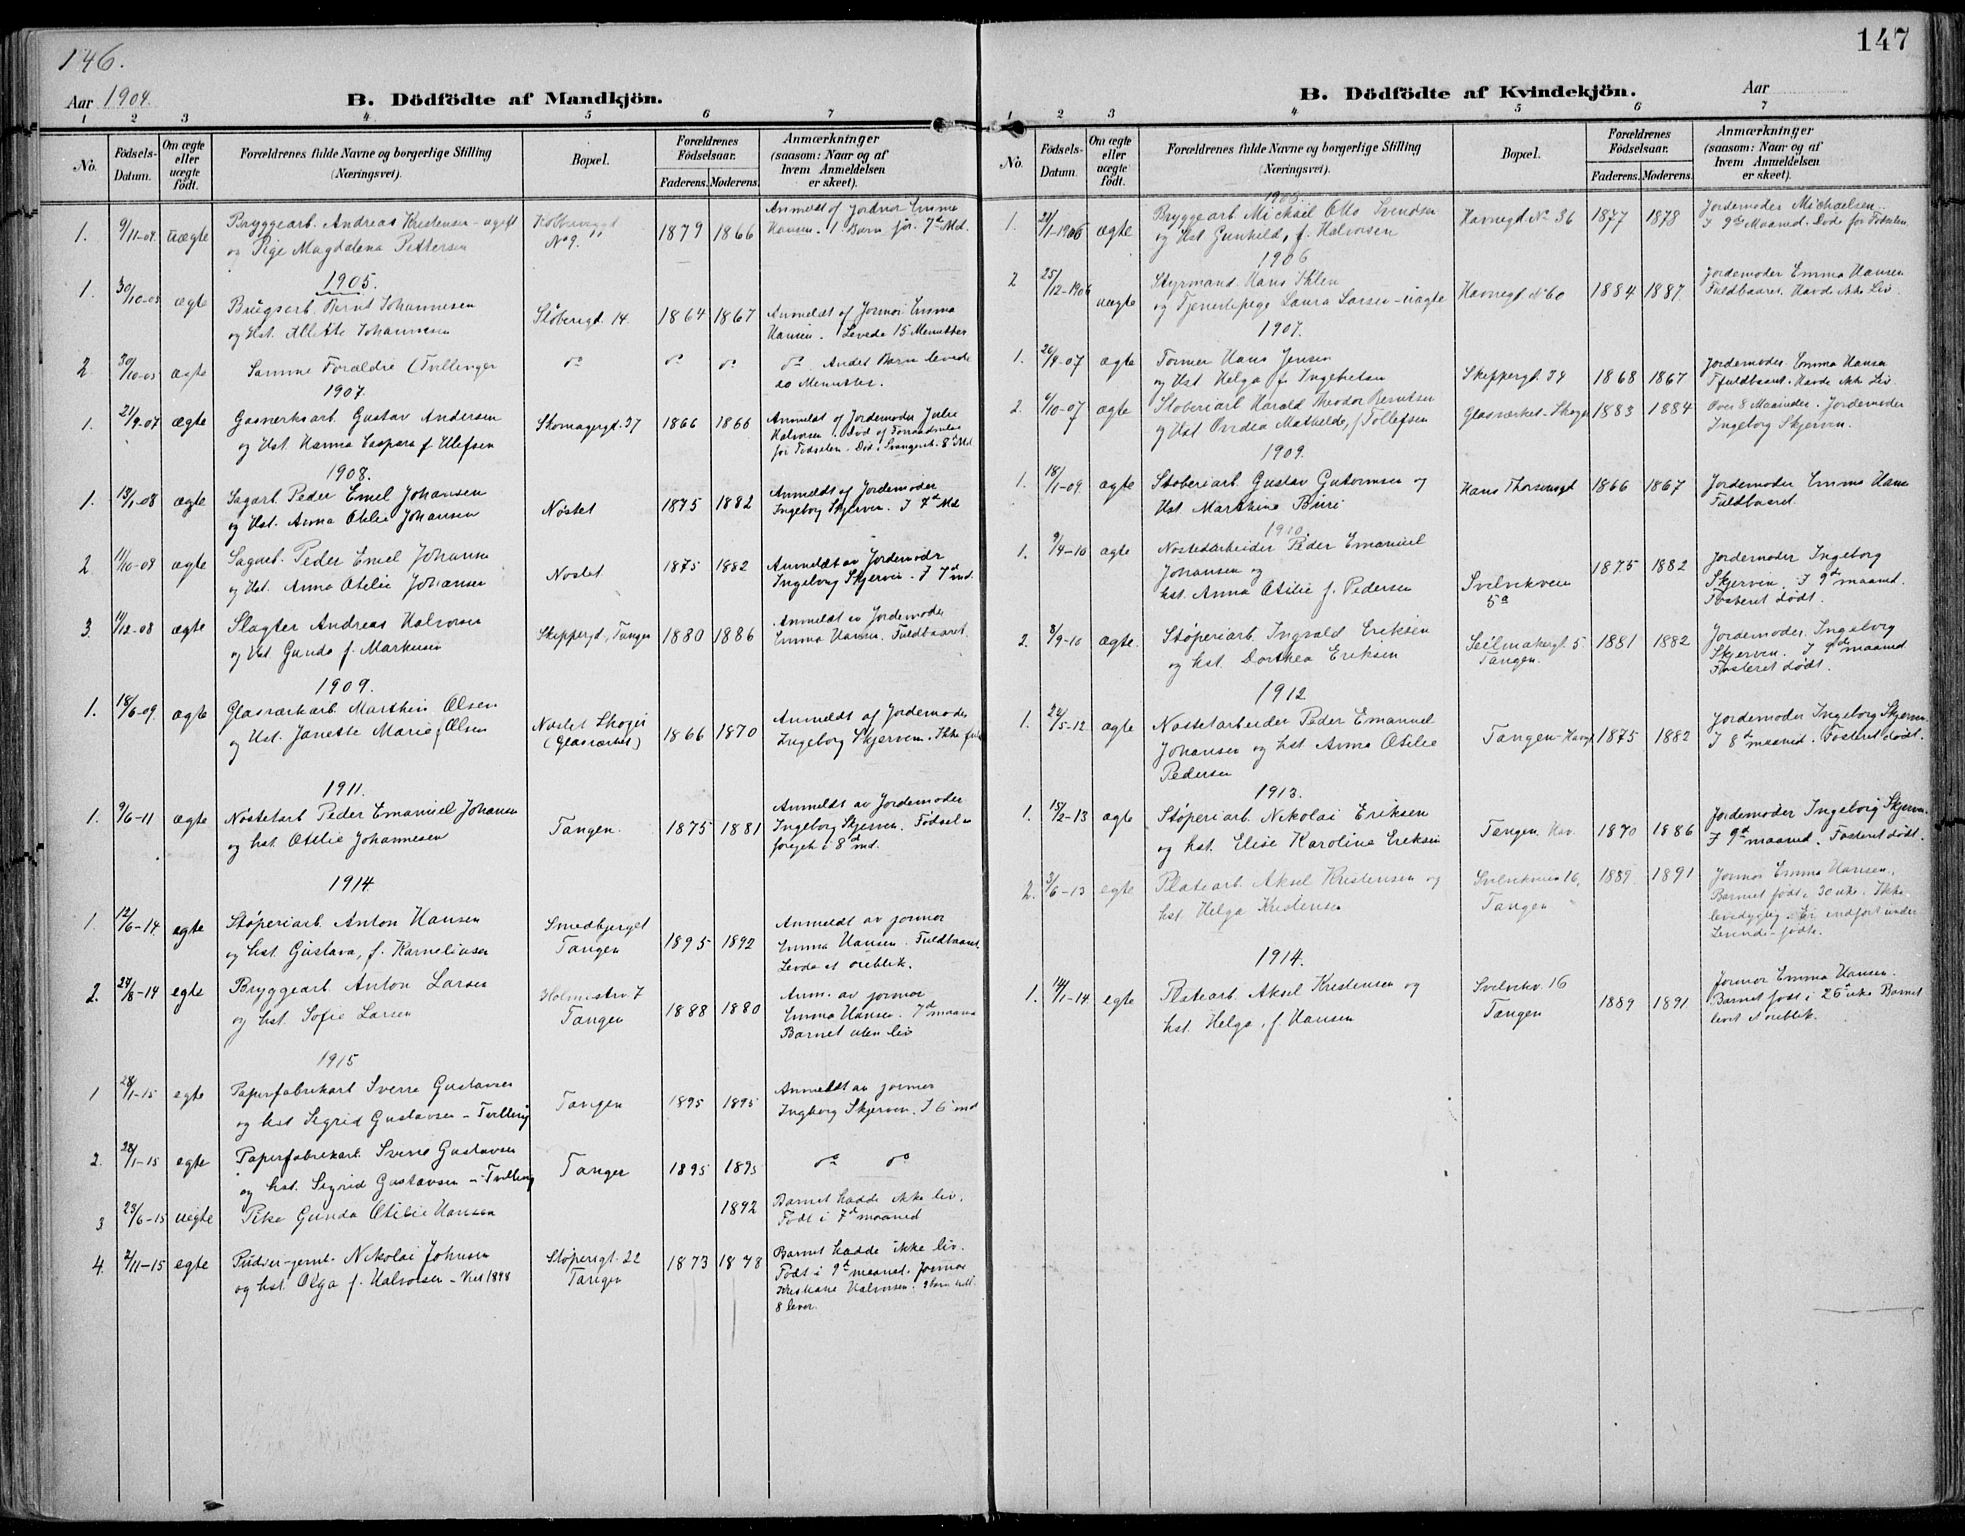 146.
Aar 1904.
B. Dödfödte af Mandkjön.
1 2 3 4 5 6 7
No.
Födsels-Datum.
Om ægte eller uægte födt.
Forældrenes fulde Navne og borgerlige Stilling
(Næringsvei).
Bopæl.
Forældrenes Födselsaar.
Faderens. Moderens.
Anmærkninger
(saasom: Naar og af
hvem Anmeldelsen
er skeet).
1. 9/11-04. uægte Bryggearb. Andreas Kristensen - ugift
og Pige Magdalena Pettersen
No 9. 1879 1866
Anmeldt af Jordmor Emma
Hansen. 1 Barn før. 7de Md.
1905.
1. 30/10-05 ægte Brugsarb. Bernt Johannesen
og Hst. Johannesen
Støberigd. 14. 1864 1867
Anmeldt af Jormor Emma
Hansen. Levede 15 Menutter
2 30/10-05 ægte Samme Forældre (Tvillinger
do do do do Andet Barn levede
20 Menutter.
1907.
1. 21/9-07 ægte Gasværksarb. Gustav Andersen
og Hst. Hanna Caspara f. Ellefsen
Skomagergd. 37 1866 1866
Anmeldt af Jordemoder Julie
Halvorsen.
før Fødselen. Død i Svangersk. 8de Md
1908.
1. 13/1-08 ægte Sagarb. Peder Emel Johansen
og Hst. Anna Otilie Johansen
Nøstet 1875 1882
Anmeldt af Jordemoder
Ingeborg Skjerven. I 7de Md
2 11/10-08 ægte Sagarb. Peder Emel Johansen
og Hst. Anna Otilie Johansen
Nøstet 1875 1882
Anmeldt av Jordemodr
Ingeborg Skjerven. I 7de md.
3. 11/12-08 ægte Slagter Andreas Halvorsen
og Hst Gunda f. Markusen
Skippergd, Tangen 1880 1886
Anmeldt av Jordemoder
Emma Hansen. Fuldbaaret.
1909.
1. 18/6-09. ægte Glasværkarb. Marthin Olsen
og Hst. Janette Marie f. Olsen
Nøstet Skoger
(Glasværket) 1866 1870
Anmeldt af Jordemoder
Ingeborg Skjerven. Ikke
1911.
1. 9/6-11 ægte Nøstetarb Peder Emanuel Johansen
og hst. Otilie Johannesen
Tangen. 1875 1881
Anmeldt av Jordemoder
Ingeborg Skjerven. Fødselen
foregik i 8de md.
1914
1. 12/6-14 ægte Støperiarb. Anton Hansen
og hst. Gustava, f. Korneliusen
Smedbjerget
Tangen 1895 1892
Anmeldt av jormor
Emma Hansen. Fuldbaaret.
Levde et øieblik.
2. 24/8-14 egte Bryggearb. Anton Larsen
og hst. Sofie Larsen
Holmestrv. 7
Tangen 1888 1880
Anm. av jormor
Emma Hansen. 7de maaned
Barnet uten liv
1915
1 28/1-15 egte Papirfabrikarb Sverre Gustavsen
og hst Sigrid Gustavsen - Tvilling
Tangen 1895 1895
Anmeldt av jormor
Ingborg Skjerven. I 6 md
2. 28/1-15 egte Papirfabrikarb. Sverre Gustavsen
og hst. Sigrid Gustavsen - Tvilling
Tangen 1895 1895 do do
3 23/6-15 uegte Pike Gunda Otilie Hansen
1892 Barnet hadde ikke liv.
Født i 7de maaned
4. 2/11-15 egte Nikolai Johnsen
og hst. Olga f. Halvorsen - Viet 1898
Støperigt. 22
Tangen 1873 1878
Barnet hadde ikke liv.
Født i 9de maaned. Jormor
Kristiane Halvorsen.
8 lever.
147
B. Dödfödte af Kvindekjön.
Aar
1 2 3 4 5 6 7
No.
Födsels-Datum.
Om ægte eller uægte födt.
Forældrenes fulde Navne og borgerlige Stilling
(Næringsvei).
Bopæl.
Forældrenes Födselsaar.
Faderens. Moderens.
Anmærkninger
(saasom: Naar og af
hvem Anmeldelsen
er skeet).
1. 21/1-1906 ægte Bryggearb Michael Otto Svendsen
og Hst Gunhild, f. Halvorsen
Havnegd No 36 1877 1878
Jordemoder Michaelsen.
I 9de Maaned. Døde før Fødselen.
1906
2 25/12-1906 uægte Styrmand Hans Ihlen
og Tjenestepige Laura Larsen - uægte
Havnegd. No 60 1884 1887.
Jordemoder Emma Hansen
Fuldbaaret. Havde ikke Liv.
1907.
1. 26/9-07 ægte Former Hans Jensen
og Hst Helga f. Ingebretsen
Skippergt. 34 1868 1867
Jordemoder Emma Hansen
Fuldbaaret. Havde ikke Liv
2. 6/10-07 ægte Støberiarb Harald Theodor Berntsen
og Hst Ovidea Mathilde, f. Tollefsen
Glasværket-Skoger 1883 1884
Over 8 Maaneder. Jordemoder
Ingeborg Skjerven.
1909.
1. 18/1-09. ægte Støberiarb. Gustav Gutormsen og
Hst Marthine Buri
Hans Thorsensgd 1866 1867
Jordemoder Emma Hansen
Fuldbaaret.
1910.
1. 9/4-10 ægte Nøstedarbeider Peder Emanuel
Johansen og
hst. Anna Otilie f. Pedersen
Svelvikveien
5a 1875 1882
Jordemoder Ingeborg
Skjerven. I 9de maaned.
Fosteret dødt.
2. 8/9-10 ægte. Støperiarb. Ingvald Eriksen
og hst. Dorthea Eriksen
Seilmakergt. 5.
Tangen. 1881 1882
Jordemoder. Ingeborg
Skjerven. I 9de maaned
Fosteret dødt.
1912
1. 24/5-12 ægte Nøstetarbeider Peder Emanuel
Johansen og hst Anna Otilie
Pedersen
Tangen- 1875 1882
Jordemoder Ingeborg Skjerven.
I 8de maaned. Fosteret dødt.
1913.
1. 15/2-13 ægte Støperiarb. Nikolai Eriksen
og hst. Elise Karoline Eriksen
Tangen, Hav. 1870 1886
Jordemoder Ingeborg Skjerven.
I 9de maaned. Fosteret dødt.
2. 3/6-13 egte Platearb. Aksel Kristensen og
hst. Helga Kristensen
Svelvikveien 16,
Tangen 1889. 1891
Jormor Emma Hansen.
Barnet født i 30 uke. Ikke
levedygtig. Ei indført under
Levende-fødte.
1914.
1. 14/1-14 egte Platearb. Aksel Kristensen og
hst. Helga, f. Hansen
Svelvikv. 16
Tangen 1889 1891
Jormor Emma Hansen.
Barnet født i 26de uke Barnet
levet 1 øieblik.